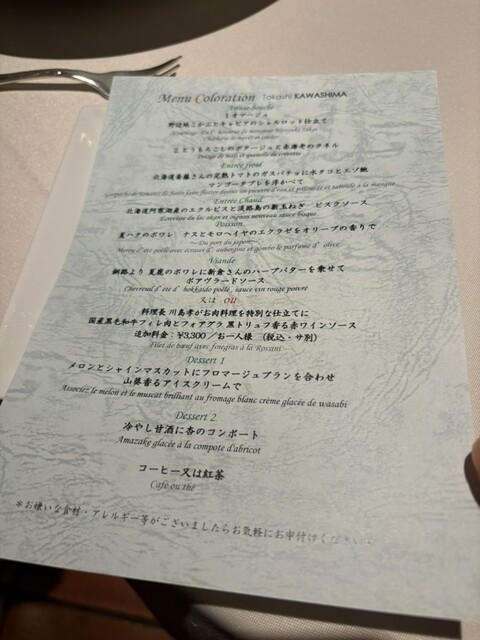 Menu Coloration Takashi KAWASHIMA
Amuse bouche
1 オマージュ
野辺地こかぶとキャビアのシャルロット仕立て
Charlotte de navet et caviar
とうもろこしのポタージュと赤海老のクネル
Potage de maïs et quenelle de crevette
Entrée froid
北海道斎藤さんの完熟トマトのガスパチョに水タコとエゾ鮑
マンゴータブレを浮かべて
Entrée Chaud
北海道阿寒湖産のエクルビスと淡路島の新玉ねぎ ビスクソース
Ecrevisse du lac akan et oignon nouveau sauce bisque
Poisson
夏ハタのポワレ ナスとモロヘイヤのエクラゼをオリーブの香りで
～Du port du japon～
Merou d'été poêlé avec écrasé d'aubergine et gombo le parfumé d'olive
Viande
釧路より 夏鹿のポワレに新倉さんのハーブバターを乗せて
ポアヴラードソース
Chevreuil d'été d'hokkaido poêlé, sauce vin rouge poivre
又は ou
料理長 川島孝がお肉料理を特別な仕立てに
国産黒毛和牛フィレ肉とフォアグラ 黒トリュフ香る赤ワインソース
追加料金：¥3,300／お一人様 (税込・サ別)
Filet de bœuf avec foiegras à la Rossini
Dessert 1
メロンとシャインマスカットにフロマージュブランを合わせ
山葵香るアイスクリームで
Associez le melon et le muscat brilliant au fromage blanc crème glacée de wasabi
Dessert 2
冷やし甘酒に杏のコンポート
Amazake glacée à la compote d'abricot
コーヒー又は紅茶
Café ou thé
※お嫌いな食材・アレルギー等がございましたらお気軽にお申付けください